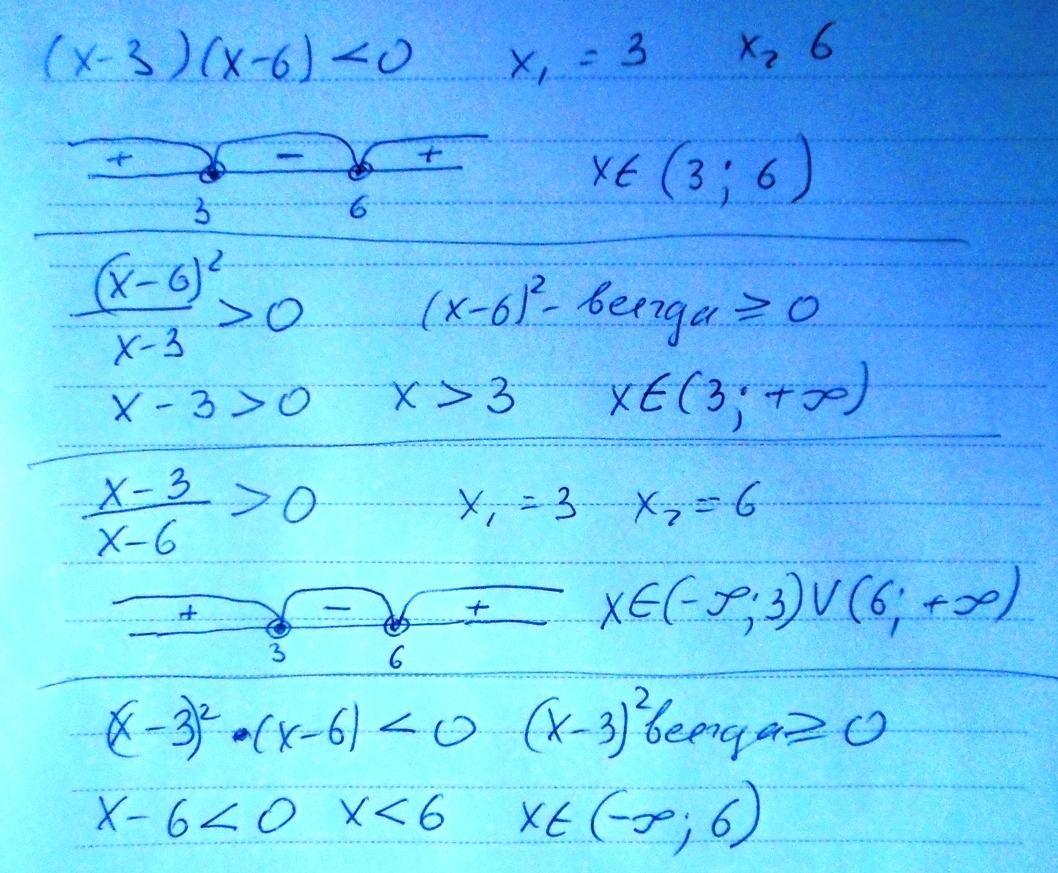 (x-3)(x-6)<0 x₁ = 3 x₂ 6
+ - +
3 6
x∈(3; 6)
(x-6)²/x-3 >0 (x-6)² - всегда ≥ 0
x-3>0 x>3 x∈(3; +∞)
x-3/x-6 >0 x₁ = 3 x₂ = 6
+ - +
3 6
x∈(-∞; 3)∨(6; +∞)
(x-3)² •(x-6) < 0 (x-3)² всегда ≥ 0
x-6<0 x<6 x∈(-∞; 6)